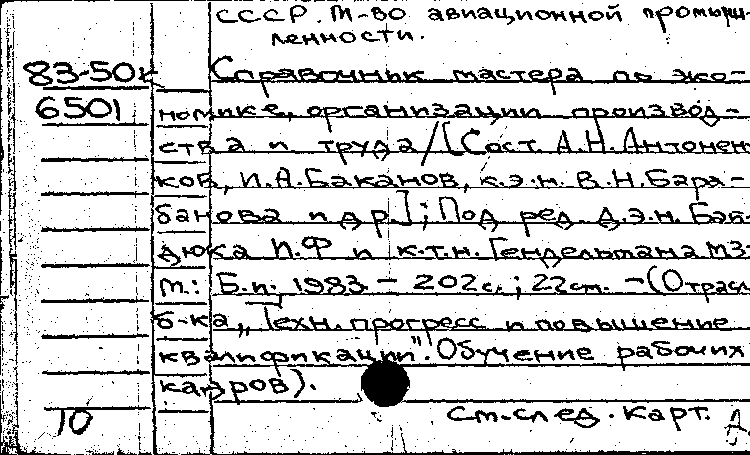 СССР. М-во авиационной промыш-
ленности.
83-50к Справочник мастера по эко-
6501 номике, организации производ-
ства и труда/[Сост. А.Н. Антонен
ков, И.А. Баканов, к.э.н. В.Н. Бара-
банова и др.]; Под ред. д.э.н. Бан
дюка И.Ф и к.т.н. Гендельмана М.З.-
М.: Б.и. 1983 - 202с.; 22см. - (Отрасл
б-ка „Техн. прогресс и повышение
квалификации". Обучение рабочих
кадров).
10 См. след. карт. А